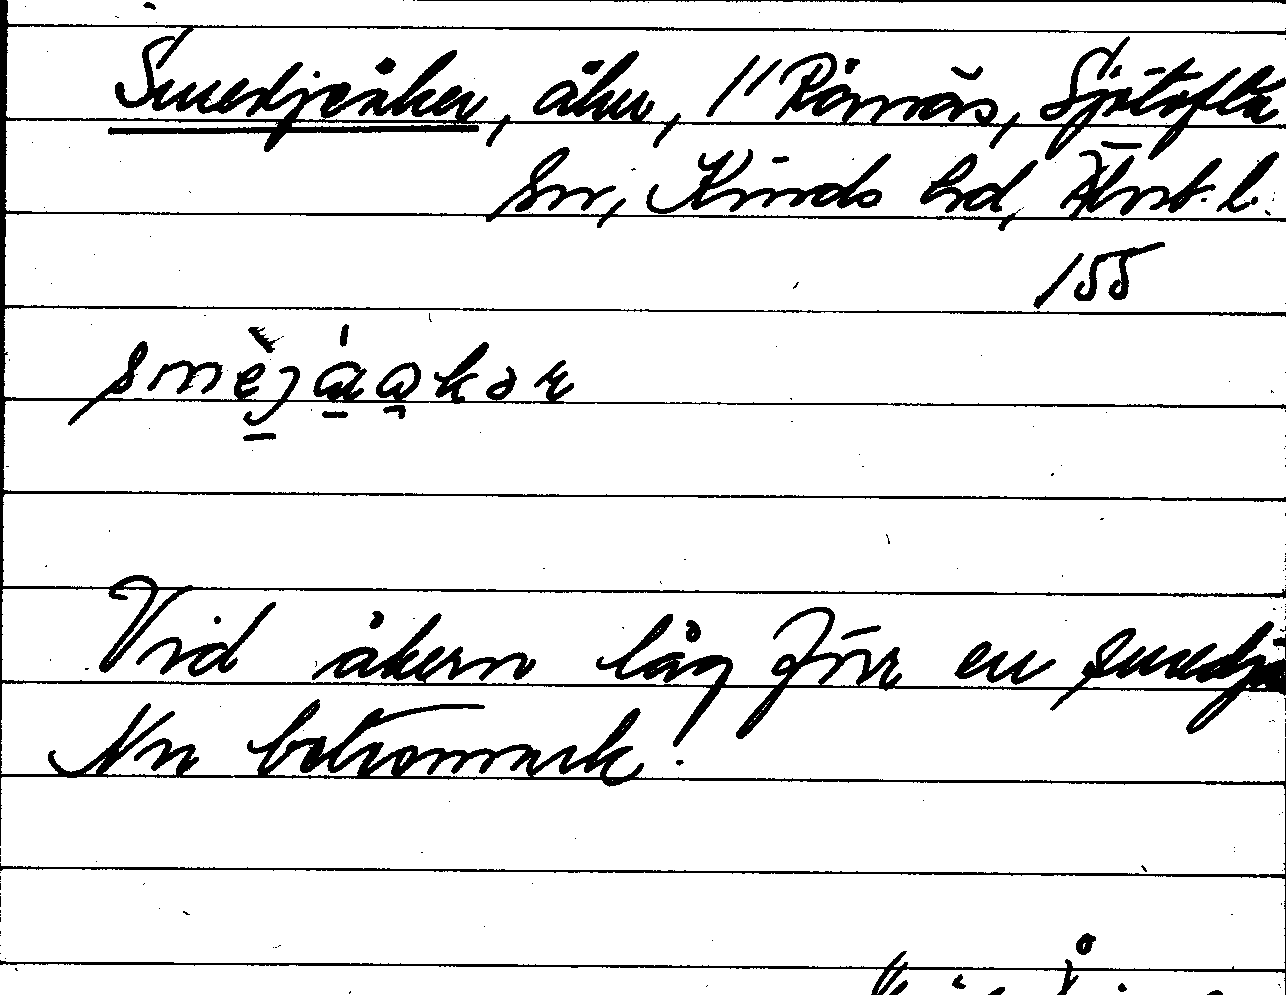 Smedjeåker, åker, 1/1 Rånnäs, Sjötofta
sn, Kinds hd, Älvsb. l.
155
Vid åkern låg förr en smedja
Nu betesmark.